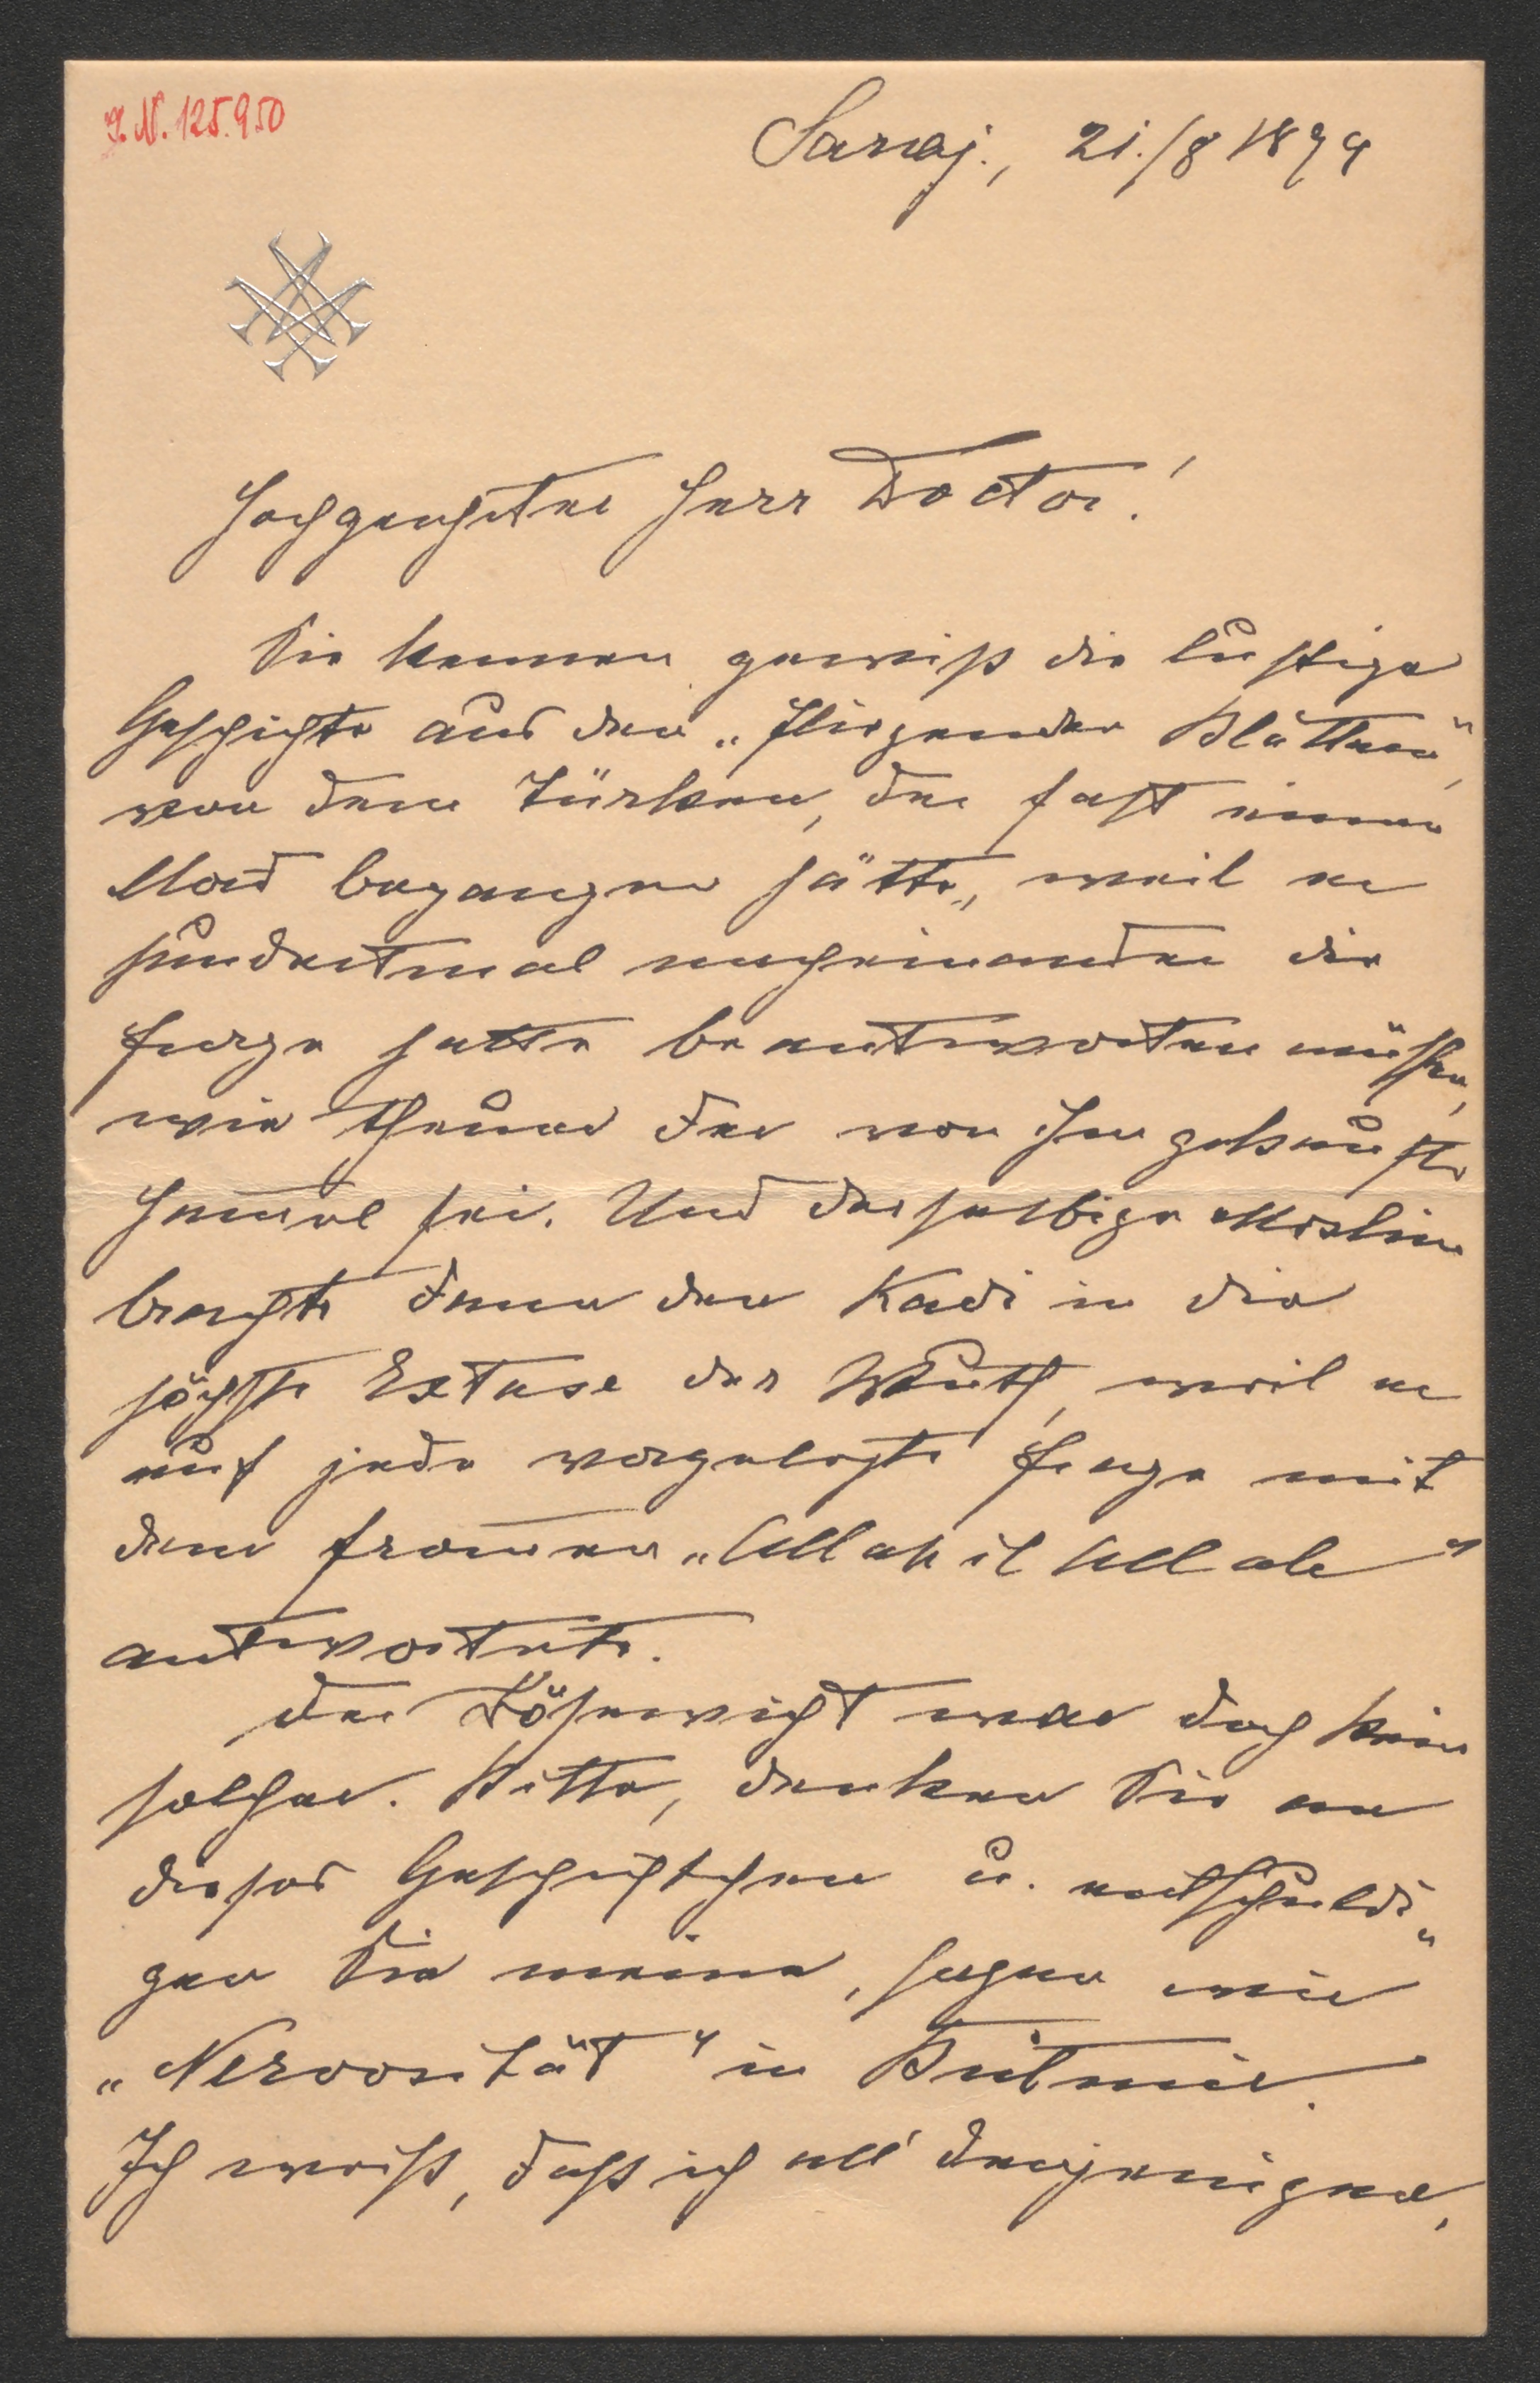 I. N. 125.950
Saraj., 21./8 1894
Hochgeehrter Herr Doctor!
Sie kennen gewiß die lustige
Geschichte aus den „fliegenden Blättern“,
von dem Türken, der fast einen
Mord begangen hätte, weil er
hundertmal nacheinander die
Frage hatte beantworten müssen,
wie theuer der von ihm gekaufte
Hammel sei. Und derselbige Moslim
brachte dann den Kadi in die
höchste Extase der Wuth, weil er
auf jede vorgelegte Frage mit
dem frommen „Allah il Allah“
antwortete.
Der Bösewicht war doch kein
solcher. Bitte, denken Sie an
dieses Geschichtchen u. entschuldi„
gen Sie meine, sagen wir
„Nervosität“ in
Ich weiß, daß ich all' denjenigen,